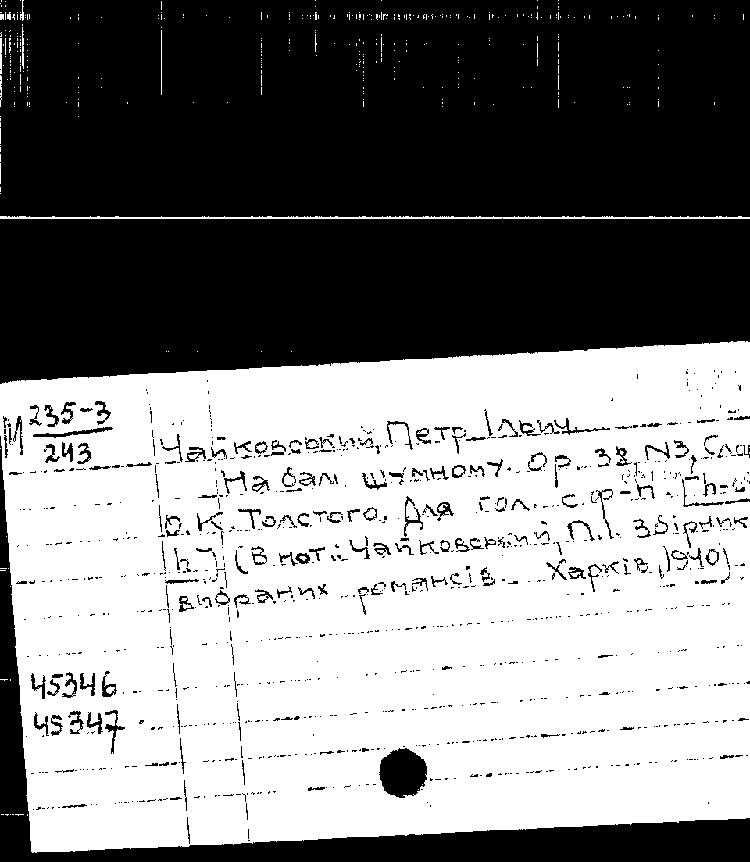 М 235-3
243
Чайковський, Петр Ільич.
На бал шумному. Op. 38, N3, Слов
О. К. Толстого. Для гол. с ф-п. [h-
h.] (В нот.: Чайковський, П. І. Збірник
вибраних романсів. Харків, 1940)
45346
45347